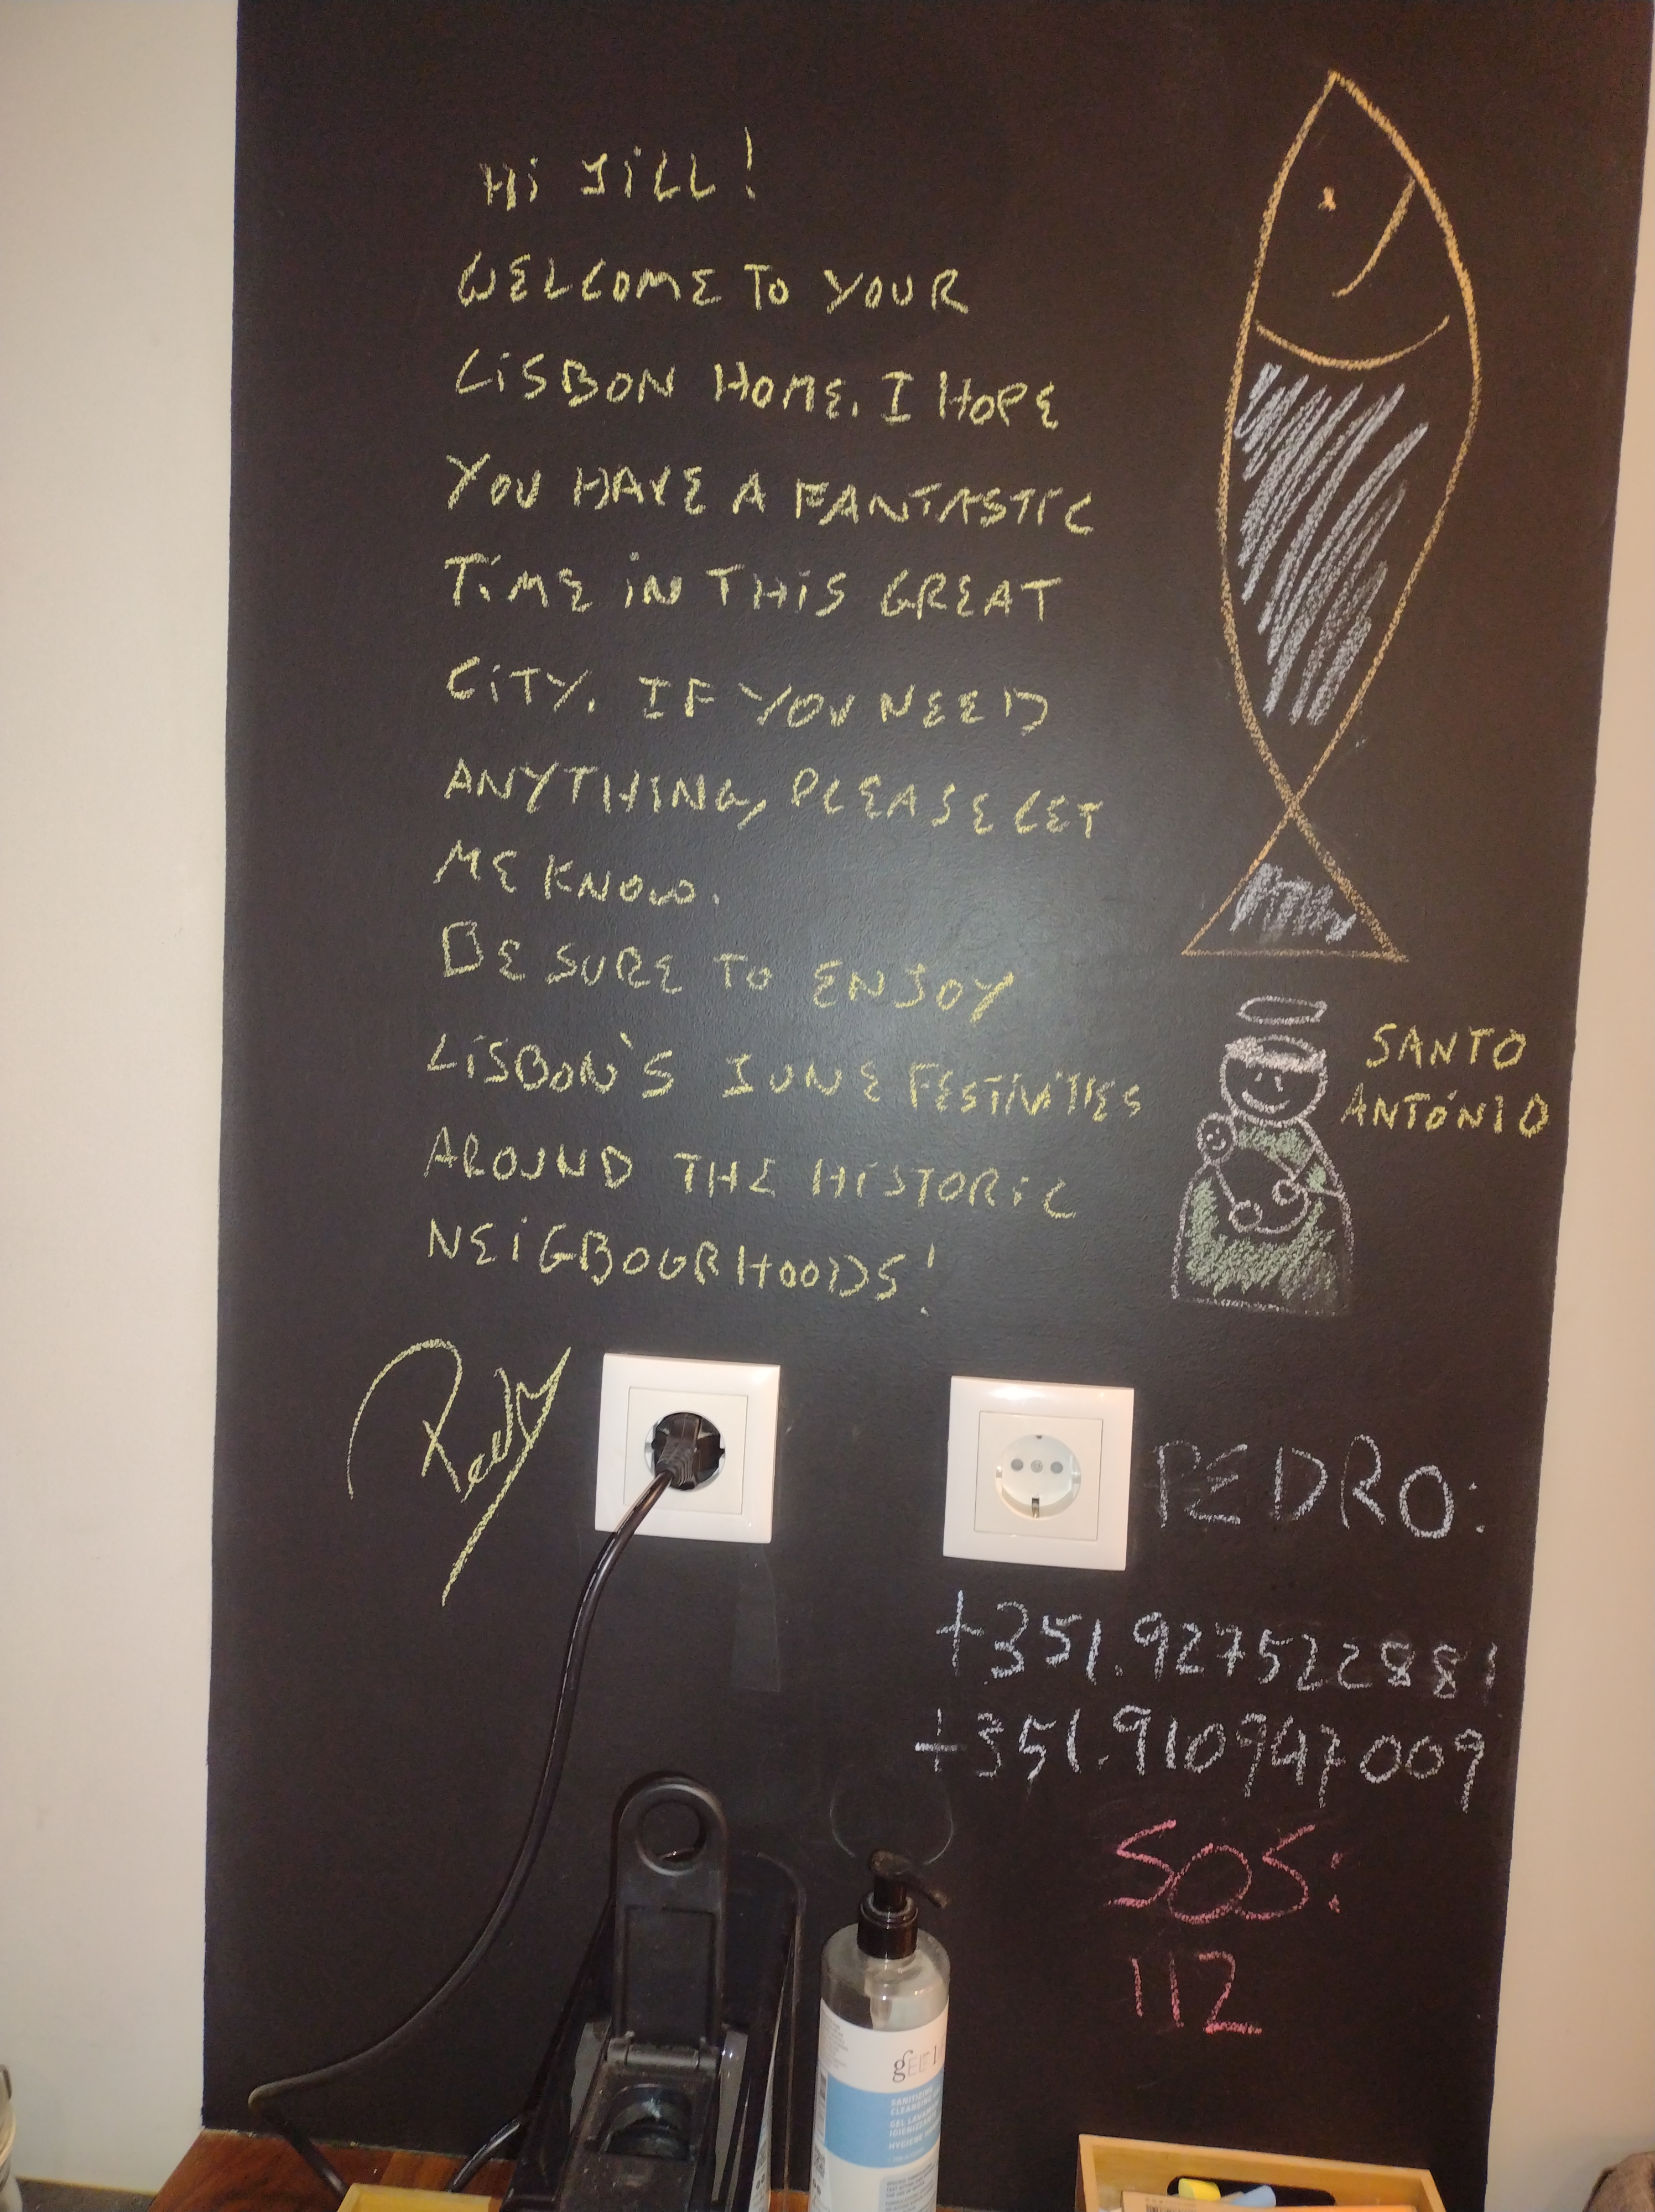 Hi JiLL!
WELCOME TO YOUR
LiSBON HOME. I HOPE
YOU HAVE A FANTASTIC
TiME iN THiS GREAT
CiTY. IF YOU NEED
ANYTHING, PLEASE LET
ME KNOW.
BE SURE TO ENJOY
LiSBON'S JUNE FESTIVITIES
AROUND THE HISTORiC
NEiGBOURHOODS!
SANTO
ANTÓNIO
Pedro
PEDRO:
+351.927522881
+351.910947009
SOS:
112
gELT
SANITIZING
CLEANSING
GEL LAVA
IGIENIZZAN
HYGIENE